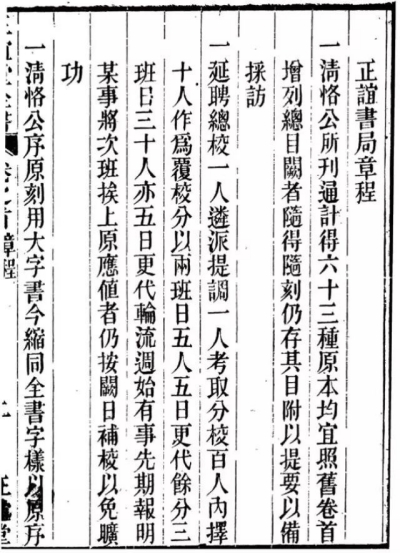 正誼書局章程
一清恪公所刊通計得六十三種原本均宜照舊卷首
增列總目闕者隨得隨刻仍存其目附以提要以備
採訪
一延聘總校一人遴派提調一人考取分校百人內擇
十人作爲覆校分以兩班日五人五日更代餘分三
班日三十人亦五日更代輪流週始有事先期報明
某事將次班挨上原應値者仍按闕日補校以免曠
功
一清恪公序原刻用大字書今縮同全書字樣以原序
正誼堂全書 卷之首章程